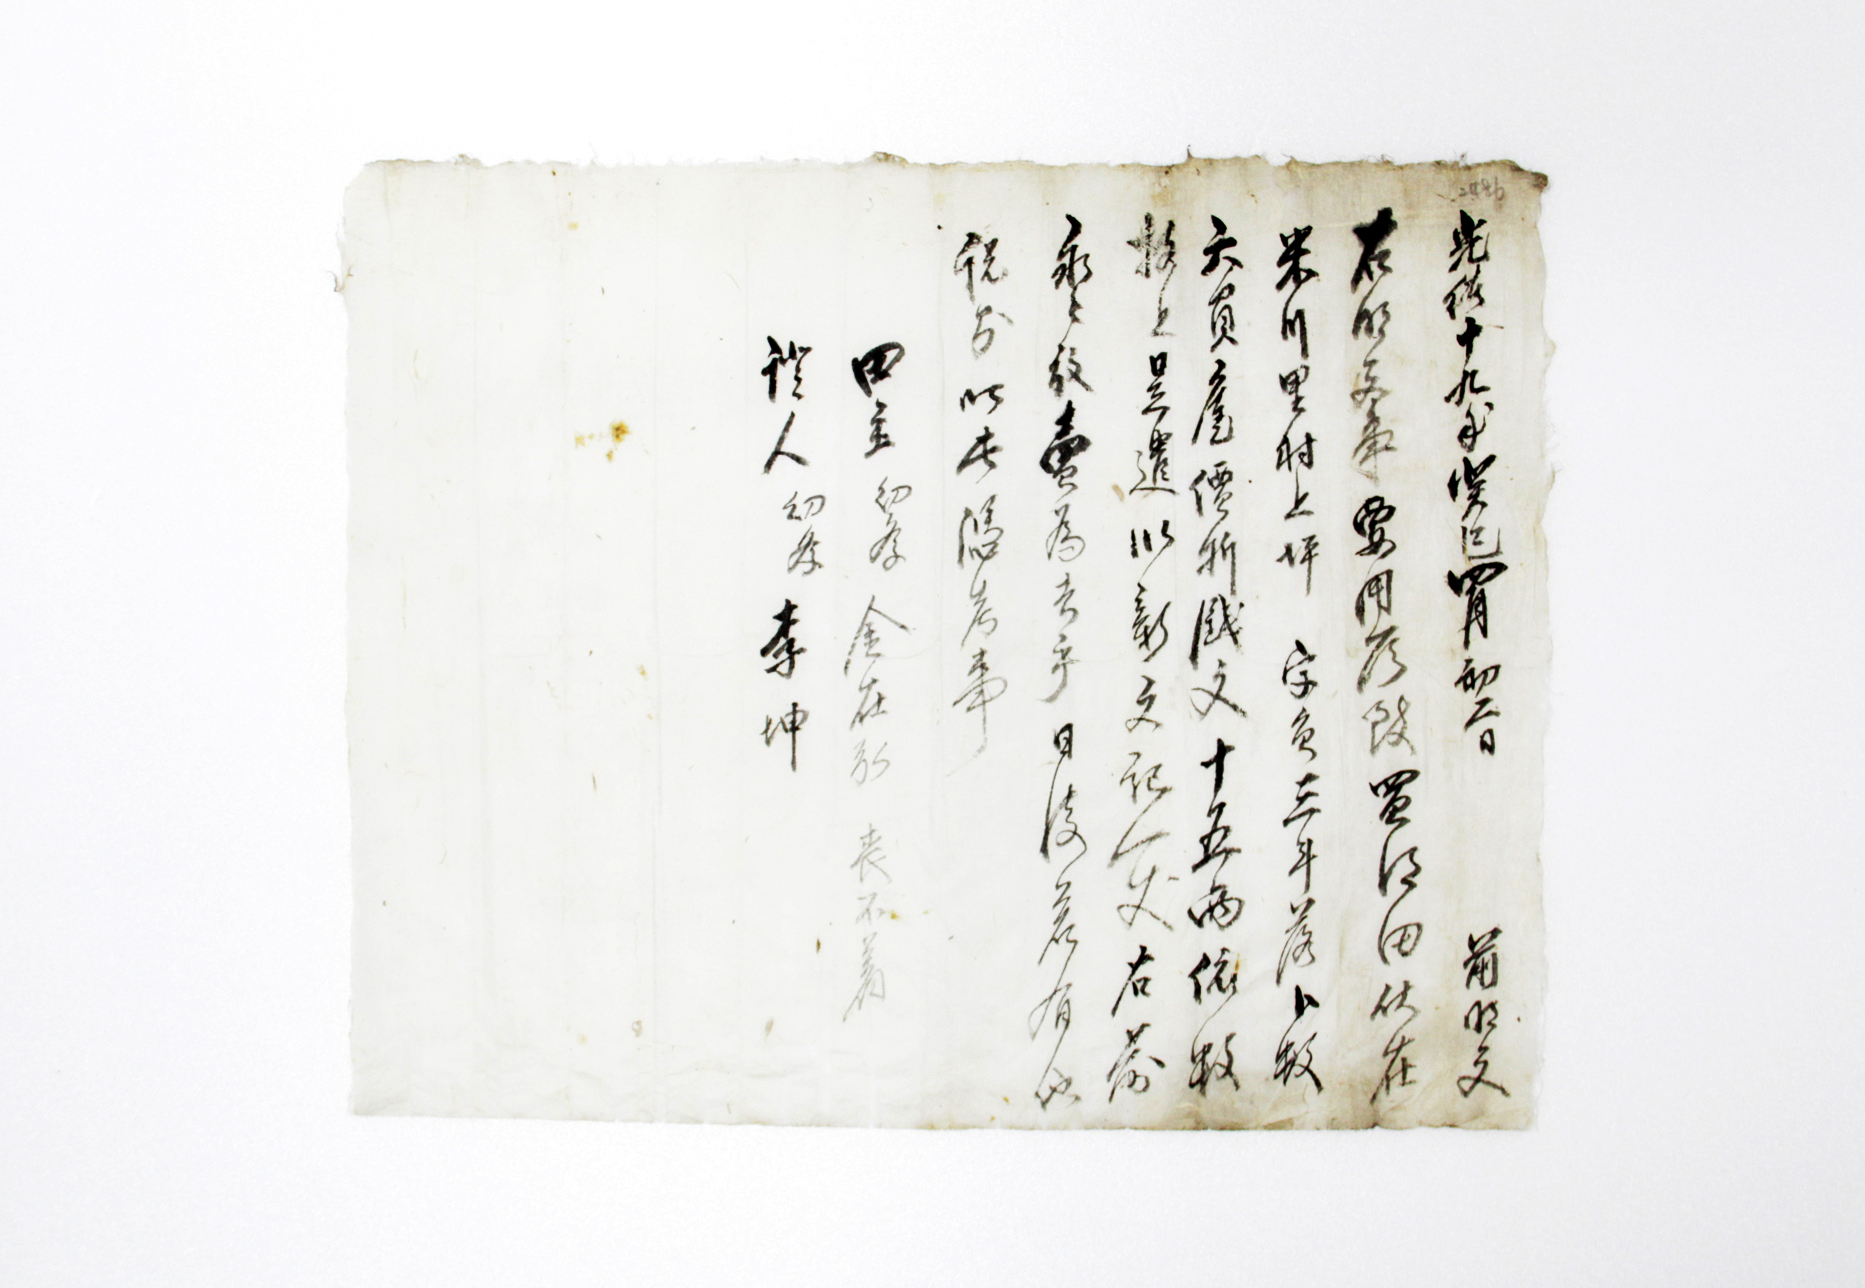 2486
光緖十九年癸巳四月初二日 前明文
右明文事 要用所致 買得田伏在
米川里村上坪 字員三斗落卜數
六負庫價折錢文十五兩依數
捧上是遣 以新文記一丈 右前
永永放賣爲去乎 日後若有他
說則 以此憑考事
田主 幼學 金在弘 喪不着
證人 幼學 李坤